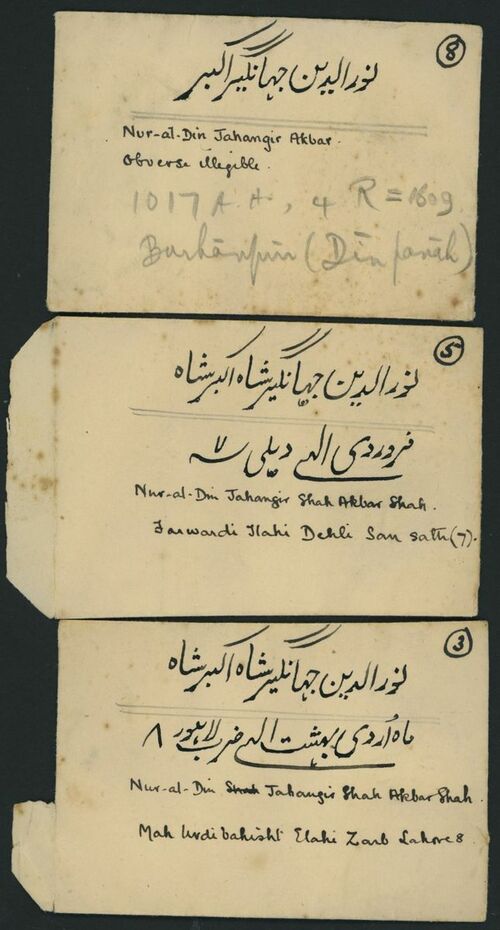 8
نورالدین جہانگیر اکبر
Nur-al-Din Jahangir Akbar.
Obverse illegible.
1017 A.H., 4 R = 1609
Burhānpur (Dīn panāh)
5
نورالدین جہانگیر شاہ اکبر شاہ
فروردی الٰہے دہلی سنہ ۷
Nur-al-Din Jahangir Shah Akbar Shah.
Farwardi Ilahi Dehli San sath (7).
3
نورالدین جہانگیر شاہ اکبر شاہ
ماہ اُردی بہشت الٰہے ضرب لاہور ۸
Nur-al-Din Shah Jahangir Shah Akbar Shah.
Mah Urdibahisht Elahi Zarb Lahore 8.